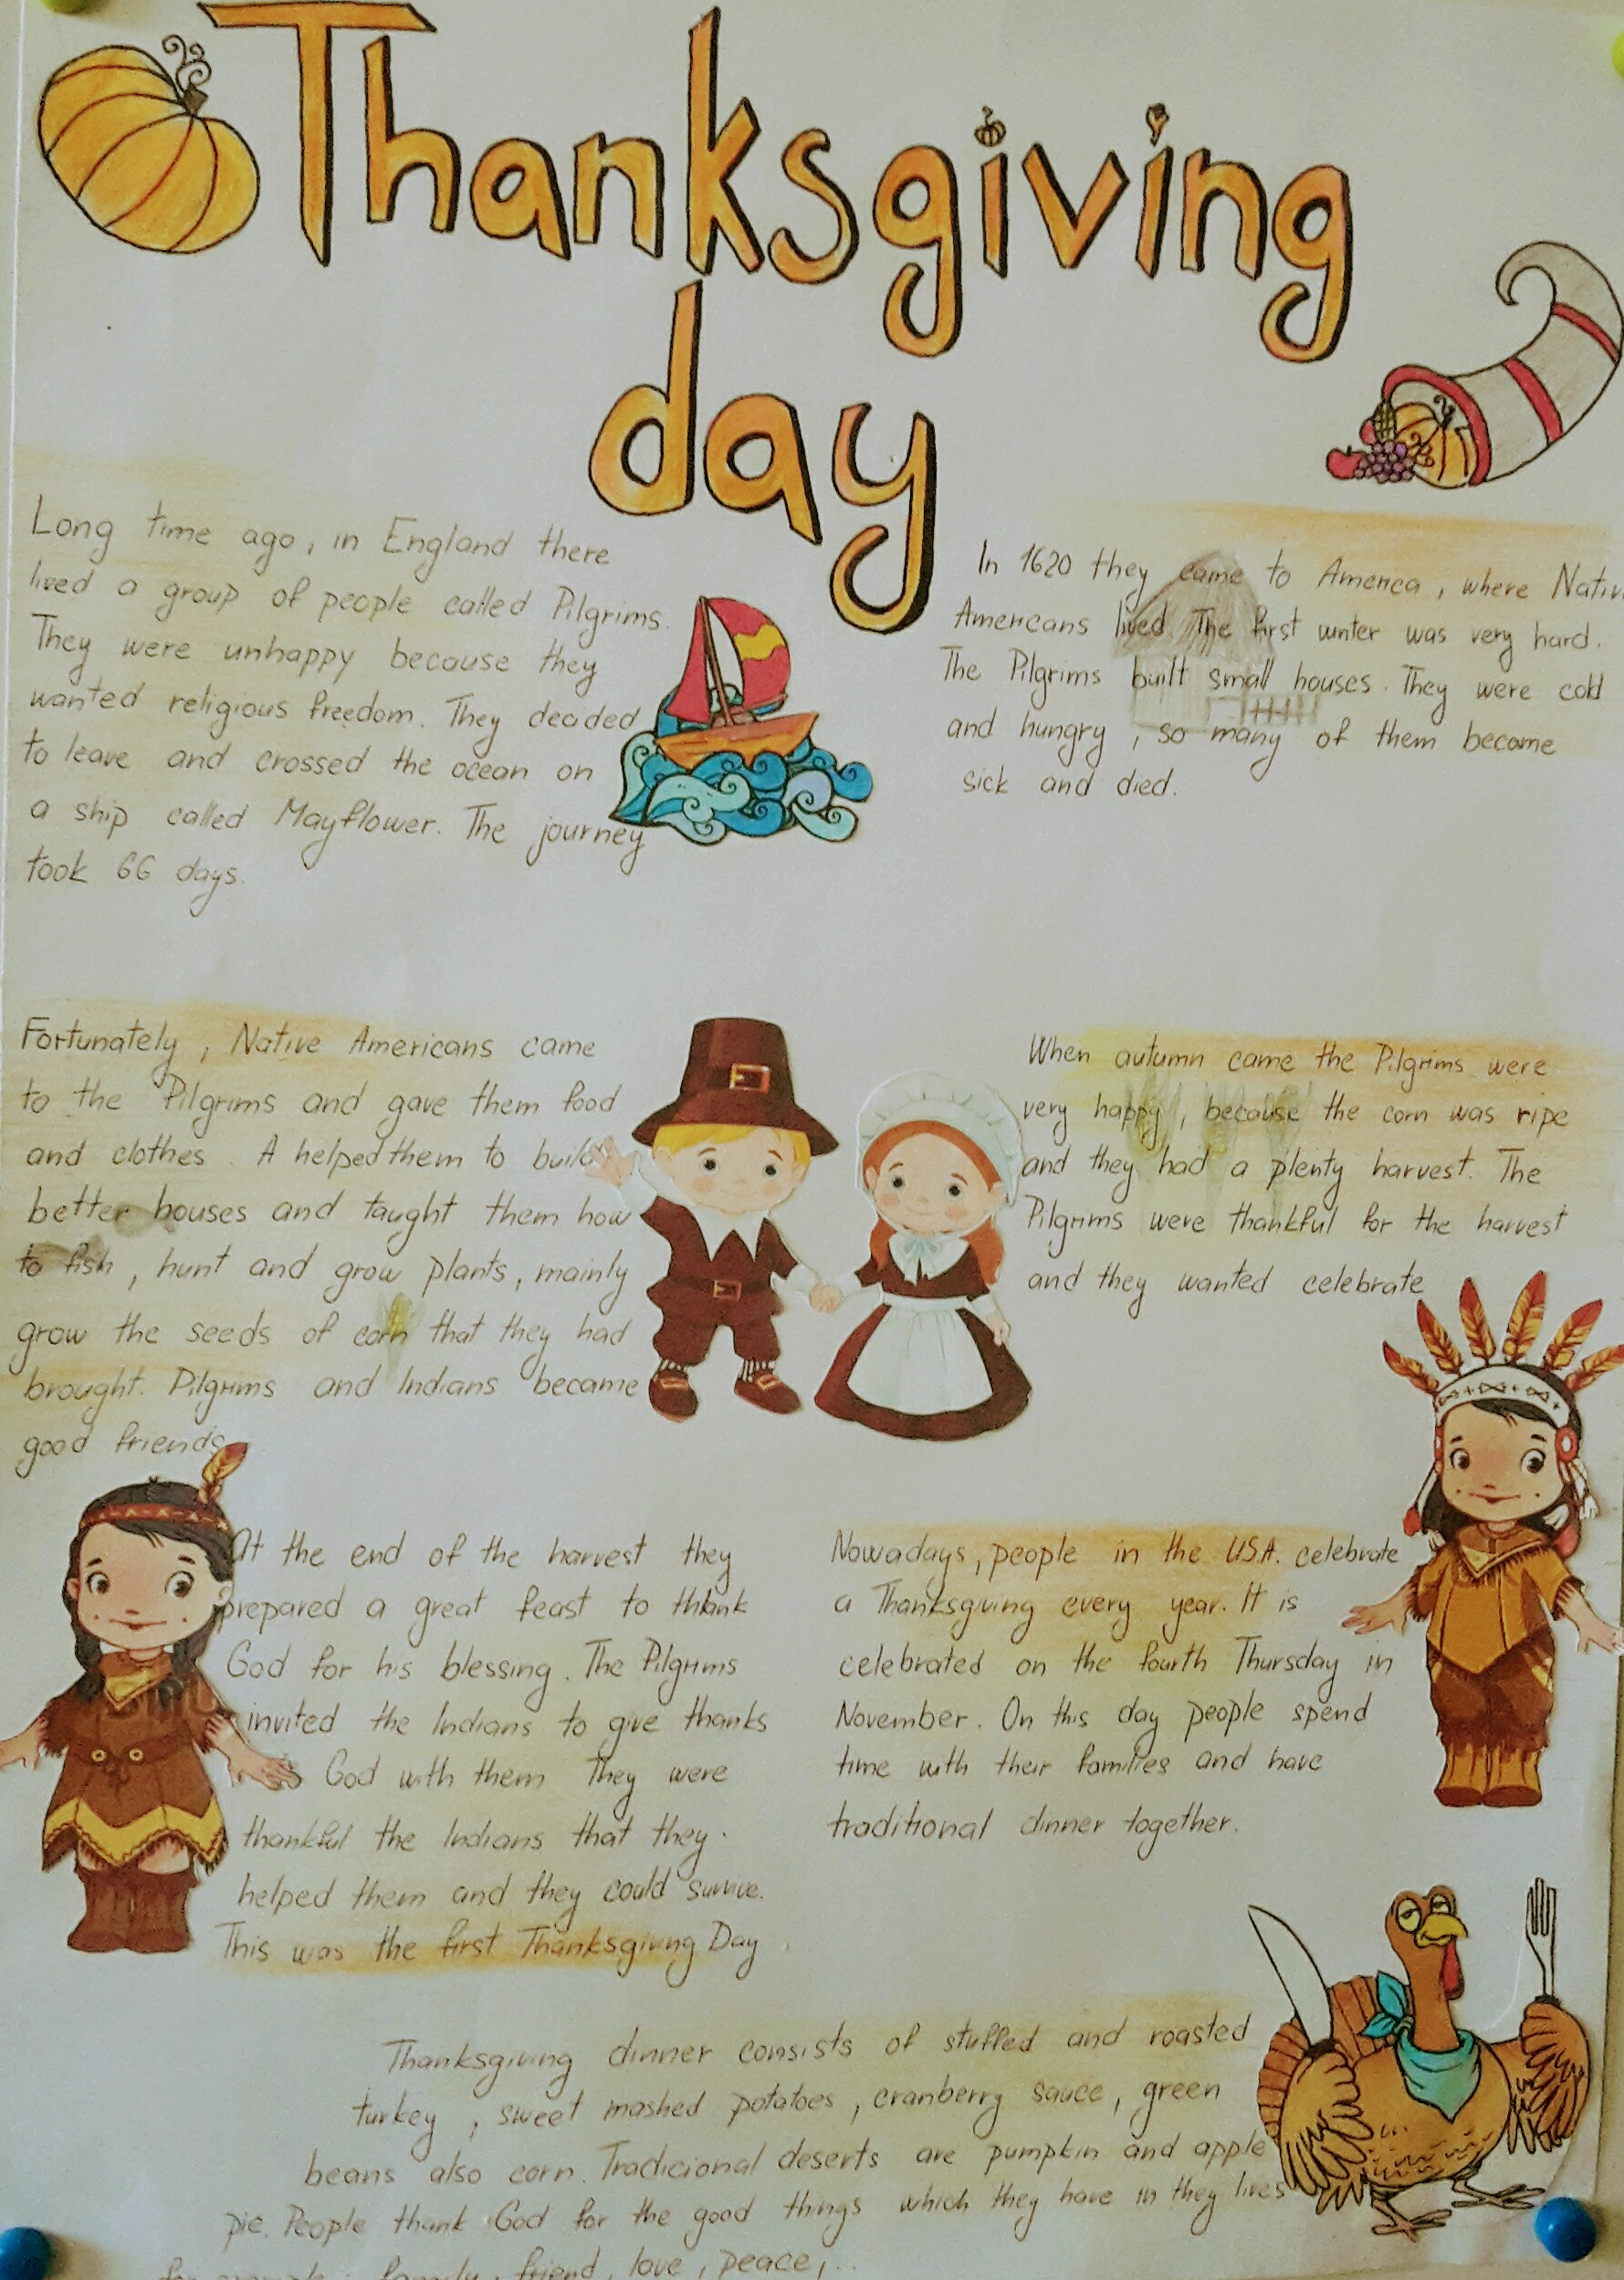 Thanksgiving
day
Long time ago, in England there
lived a group of people called Pilgrims.
They were unhappy because they
wanted religious freedom. They decided
to leave and crossed the ocean on
a ship called Mayflower. The journey
took 66 days.
In 1620 they came to America, where Nativ
Americans lived. The first winter was very hard.
The Pilgrims built small houses. They were cold
and hungry, so many of them become
sick and died.
Fortunately, Native Americans came
to the Pilgrims and gave them food
and clothes. A helped them to build
better houses and taught them how
to fish, hunt and grow plants, mainly
grow the seeds of corn that they had
brought. Pilgrims and Indians became
good friends.
When autumn came the Pilgrims were
very happy, because the corn was ripe
and they had a plenty harvest. The
Pilgrims were thankful for the harvest
and they wanted celebrate
At the end of the harvest they
prepared a great feast to thank
God for his blessing. The Pilgrims
invited the Indians to give thanks
God with them They were
thankful the Indians that they
helped them and they could survive.
This was the first Thanksgiving Day.
Nowadays, people in the USA. celebrate
a Thanksgiving every year. It is
celebrated on the fourth Thursday in
November. On this day people spend
time with their families and have
traditional dinner together.
Thanksgiving dinner consists of stuffed and roasted
turkey, sweet mashed potatoes, cranberry sauce, green
beans also corn. Tradicional deserts are pumpkin and apple
pie. People thank God for the good things which they have in they lives
for example: family, friend, love, peace,...